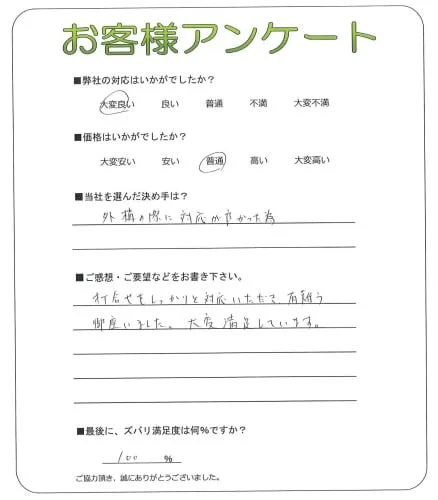 お客様アンケート
■弊社の対応はいかがでしたか?
大変良い 良い 普通 不満 大変不満
■価格はいかがでしたか?
大変安い 安い 普通 高い 大変高い
■当社を選んだ決め手は?
外構の際に対応が良かった為
■ご感想・ご要望などをお書き下さい。
打合せもしっかりと対応いただき、有難う
御座いました。大変満足しています。
■最後に、ズバリ満足度は何%ですか?
100 %
ご協力頂き、誠にありがとうございました。